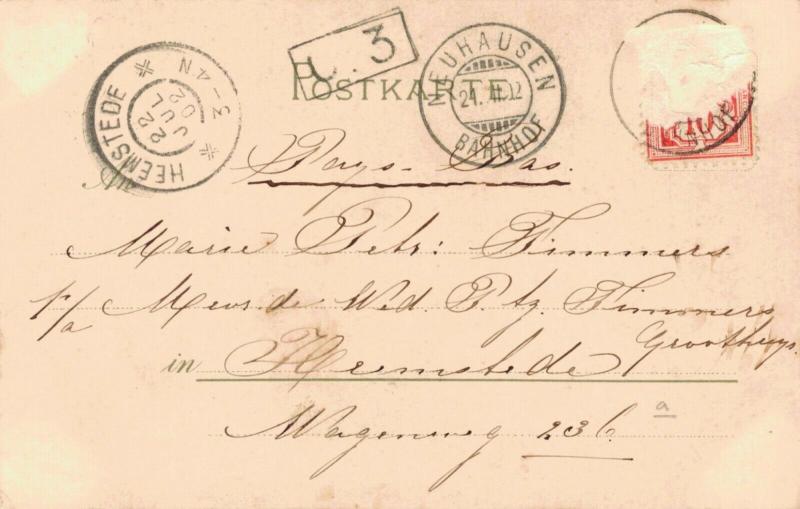 U. 3
POSTKARTE
NEUHAUSEN
21. VII. 02
BAHNHOF
HEEMSTEDE
22 JUL 02
3-4N
NHOF
An
Pays-Bas.
Marie Petr: Timmers
p/a Mevr. de Wed. P. Az. Timmers
Groothuys.
in Heemstede
Wagenweg 236
a